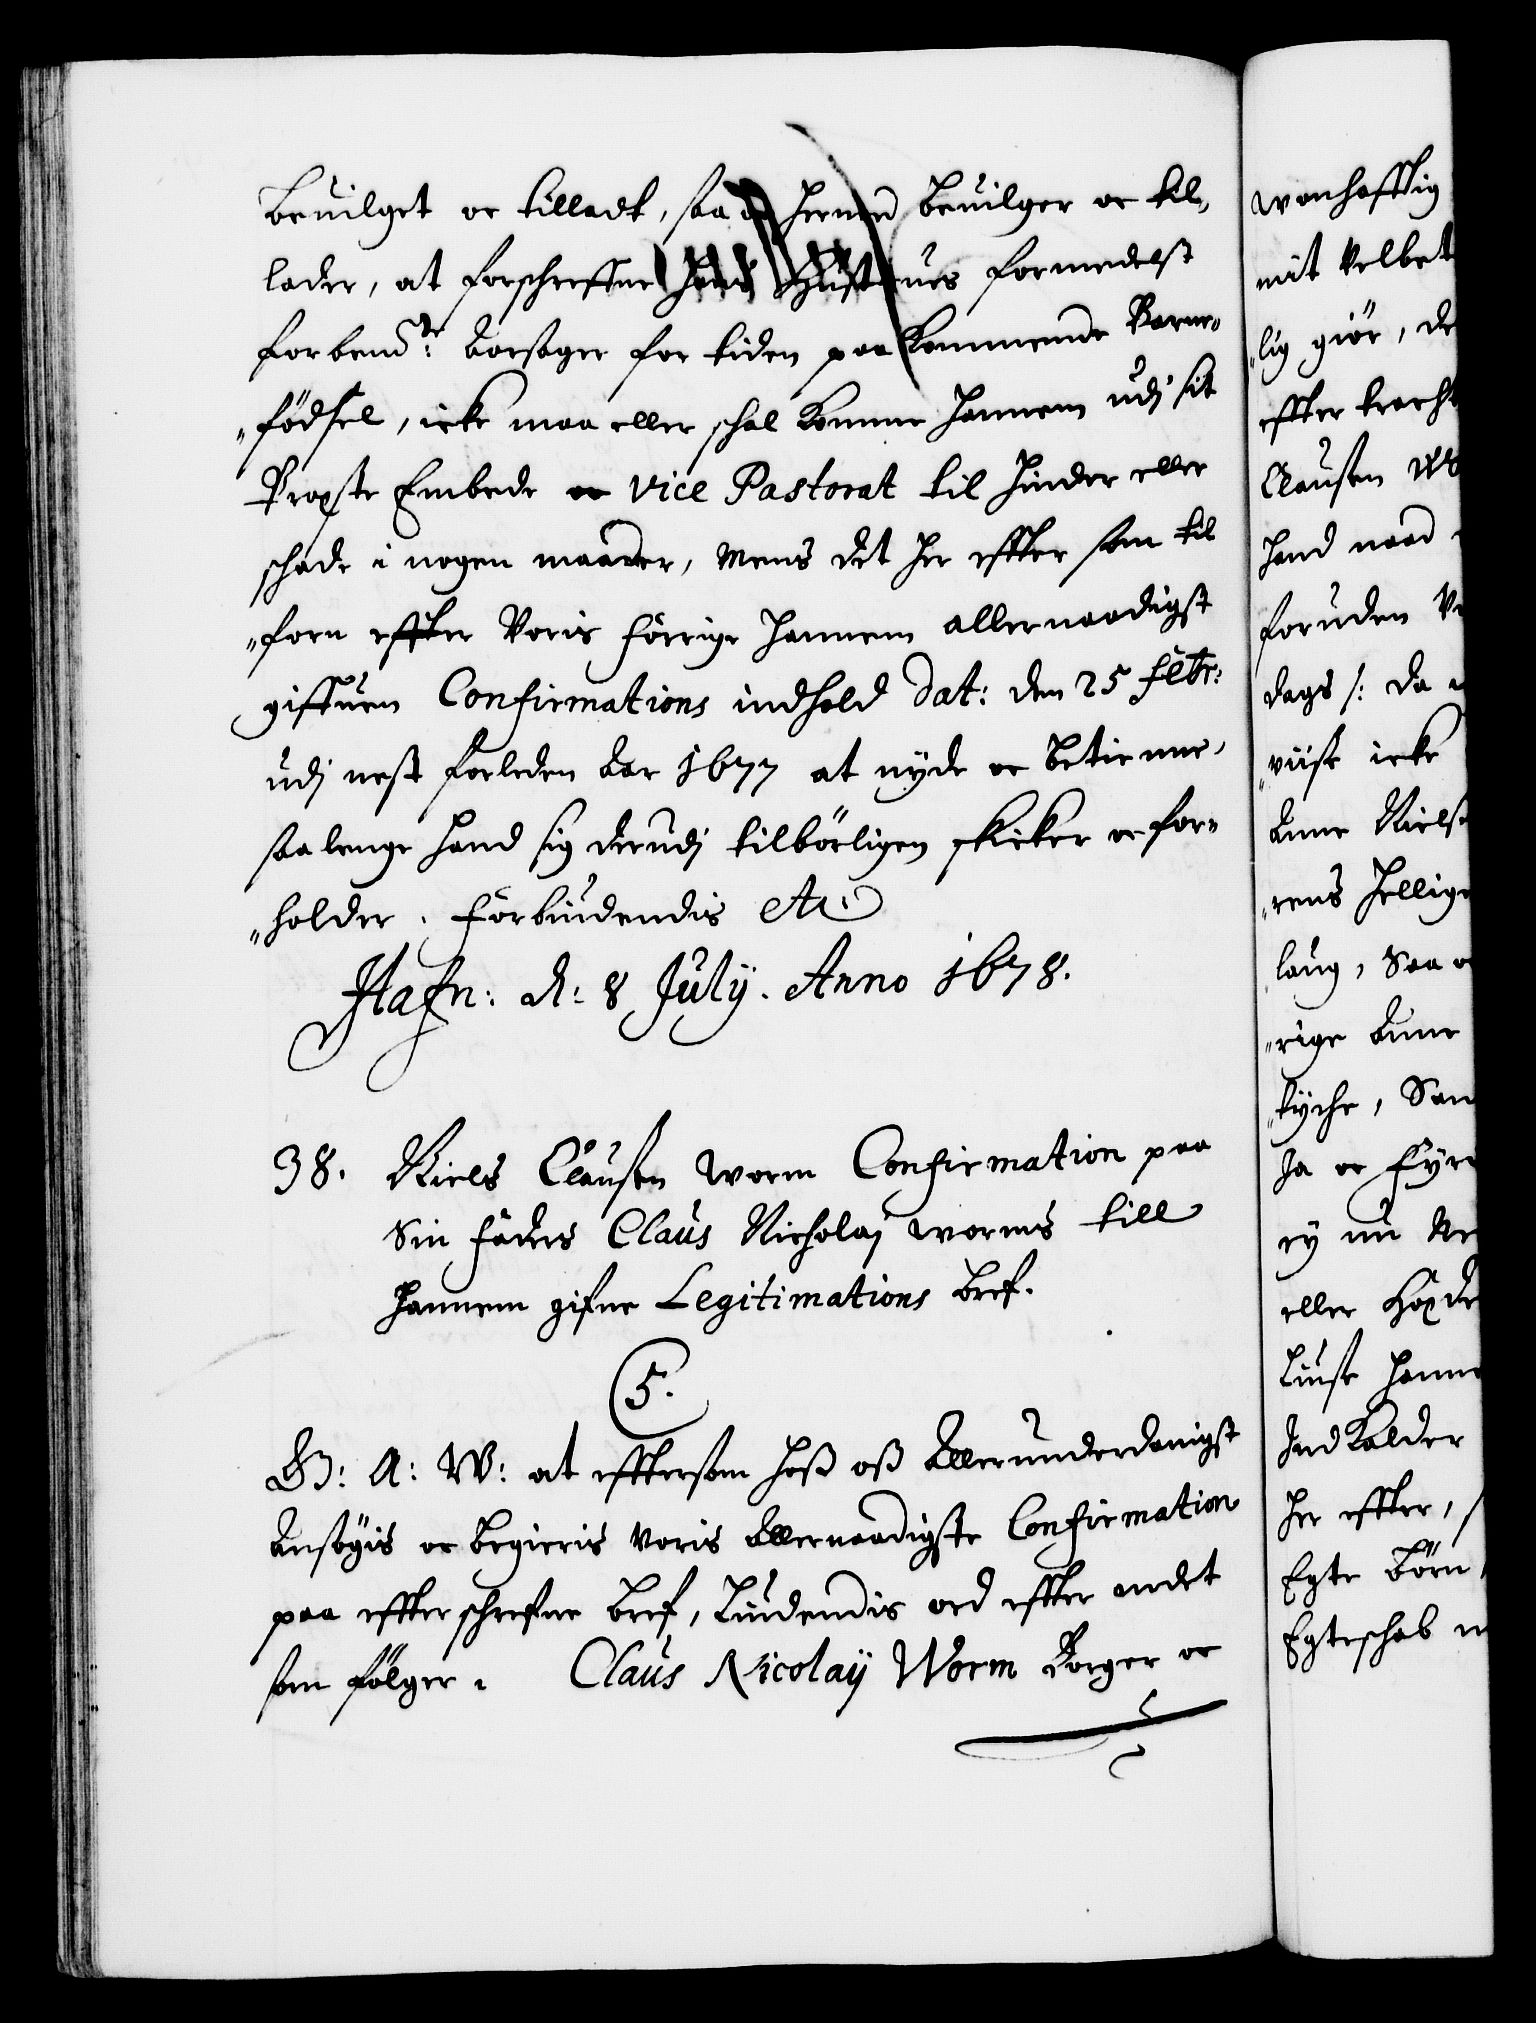 beuilget oc tilladt, saa oc hermed beuilger oc til,
lader, at forschreffne hans Høstrues formedelst
forbemd.te Aarsager for tiden paa kommende Barne„
„födsel, icke maa eller schal komme hannem udj sit
Proste Embede oc Vice Pastorat til hinder eller
schade i nogen maader, Mens det her effter som til
„forn effter Voris förrige hannem allernaadigst
giffuen Confirmations indhold dat: den 25 Febr:
udj nest forleden Aar 1677 at nyde oc betienne,
saa lenge hand sig derudj tilbörligen skicker oc for„
„holder. Forbiudendis etc.
Hafn: d: 8 July. Anno 1678.
38. Niels Clausen Worm Confirmation paa
Sin faders Claus Nicholaj Worms till
hannem gifne Legitimations bref.
5.
G: A: W: at efftersom hoß oß Allerunderdanigst
Ansögis oc begieris voris Allernaadigste Confirmation
paa effterschrefne bref, Liudendis ord effter andet
som fölger. Claus Nicolaÿ Worm Borger oc
wonhafftig
mit Velbet
„lig giör, de
effter tracht
Clausen Wo
hand naad
foruden V
dags /: da
„viise icke
Anne Niels
„rens hellige
laug, Saa o
„rige Anne
„tyche, San
Ja oc Fyr
ey nu Ne
eller
Liuse hanne
Ind Kalder
her effter,
Egte Börn,
Egteschab